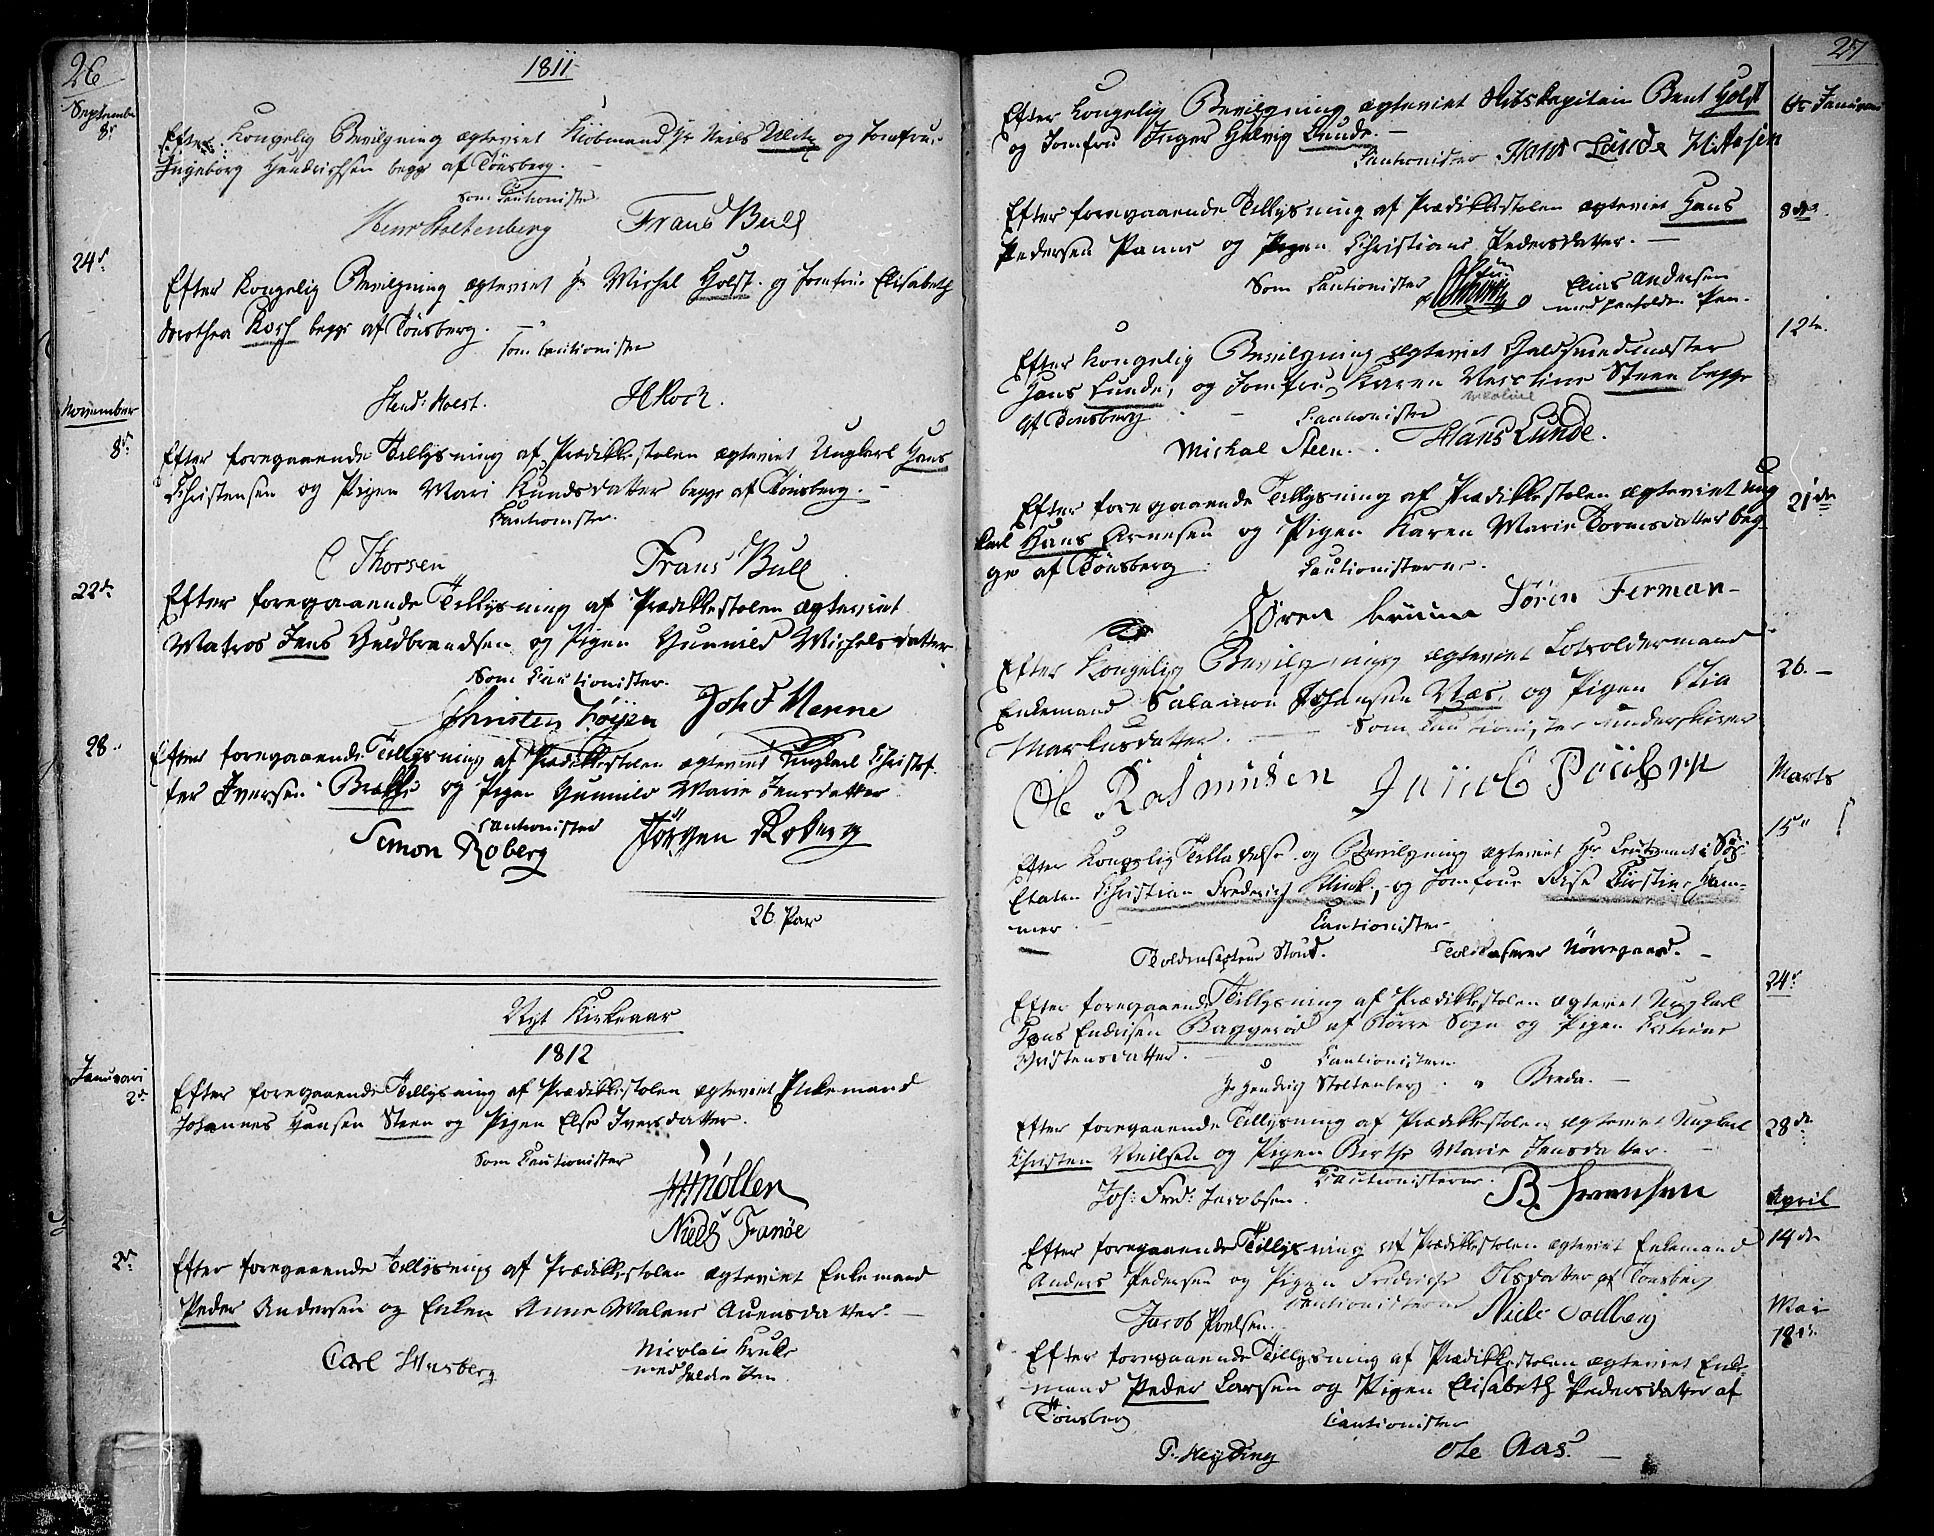 26
1811
Septembr
8de
Efter Kongelig Bevilgning ægteviet Kiöbmand Hr Neils Ulitz og Jomfrue
Ingeborg Hendrichsen begge af Tönsberg.
Som Cautionister
Henr Stoltenberg Frans Bull
24de
Efter Kongelig Bevilgning ægteviet Hr Michel Holst og Jomfrue Elisabeth
Dorothea Koch begge af Tönsberg.
som Cautionister
Hend: Holst. H Koch.
November
8de
Efter foregaaende Tillysning af Prædikkestolen ægteviet Ungkarl Hans
Christensen og Pigen Mari Knudsdatter begge af Tönsberg.
Cautionister.
C Thorsen Frans Bull
22de
Efter foregaaende Tillysning af Prædikkestolen ægteviet
Matros Jens Guldbrandsen og Pigen Gunnild Michelsdatter
Som Cautionister.
Christen Joh F Manne
28
Efter foregaaende Tillysning af Prædikkestolen ægteviet Ungkarl Christof-
fer Iversen Bakke og Pigen Gunnild Marie Jensdatter
Cautionister
Simon Roberg Jörgen Roberg
26 Par
Nyt Kirkeaar
1812
Januari
2de
Efter foregaaende Tillysning af Prædikkestolen ægteviet Enkemand
Johannes Hansen Steen og Pigen Else Iversdatter.
Som Cautionister
Möller
Niels Fanöe
2de
Efter foregaaende Tillysning af Prædikkestolen ægteviet Enkemand
Peder Andersen og Enken Anne Malene Auensdatter
Carl Husberg Nicolai Kruke
med holden Pen
27
Efter Kongelig Bevilgning ægteviet Skibskapitain Bent Holst
6te Januari
og Jomfru Inger Helvig Lunde.
Cautionister Hans Lunde
Efter foregaaende Tillysning af Prædikkestolen ægteviet Hans
8de
Pedersen Panne og Pigen Christiane Pedersdatter.
Som Cautionister Elias Andersen
med paaholden Pen.
12te
Efter Kongelig Bevilgning ægteviet Guldsmedmæster
Hans Lunde, og Jomfru Karen Steen begge
af Tönsberg
Cautionister
Michael Steen. Hans Lunde.
Efter foregaaende Tillysning af Prædikkestolen ægteviet Ung
21de
karl Hans Arnesen og Pigen Karen Marie Tormsdatter beg-
ge af Tönsberg.
Cautionisterne.
Sören Bruun Sören Ferman
Efter Kongelig Bevilgning ægteviet Lotsoldermand
26.
Enkemand Salamon Johansen Næs, og Pigen Stia
Markusdatter. Som Cautionister underskriver
O Rasmusen Jacob Poulsen
Marts
15
Efter Kongelig Tilladelse og Bevilgning ægteviet Hr Leutnant i Söe-
Etaten Christian Frederich Klinck, og Jomfrue Else Kirstine Ham-
mer
Cautionister
Toldinspecteur Stoud. Toldkasserer Nörregaard.
24de
Efter foregaaende Tillysning af Prædikkestolen ægteviet Ungkarl
Hans Endresen Baggeröd af Nörre Sogn og Pigen Kistine
Christensdatter.
Cautionistern
Hr Hendrig Stoltenberg. " Breda.
Efter foregaaende Tillysning af Prædikkestolen ægteviet Ungkarl
28de
Christen Neilsen og Pigen Birthe Marie Jensdatter.
Cautionisterne.
Joh: Fred: Jacobsen. B. Svensen
April
14de
Efter foregaaende Tillysning af Prædikkestolen ægteviet Enkemand
Anders Pedersen og Pigen Fredriche Olsdatter af Tönsberg
Cautionisterne
Jacob Poelsen. Niels Solberg
Mai
18de
Efter foregaaende Tillysning af Prædikkestolen ægteviet Enke-
mand Peder Larsen og Pigen Elisabeth Pedersdatter af
Tönsberg
Cautionister
P. Heyding Ole Aas.